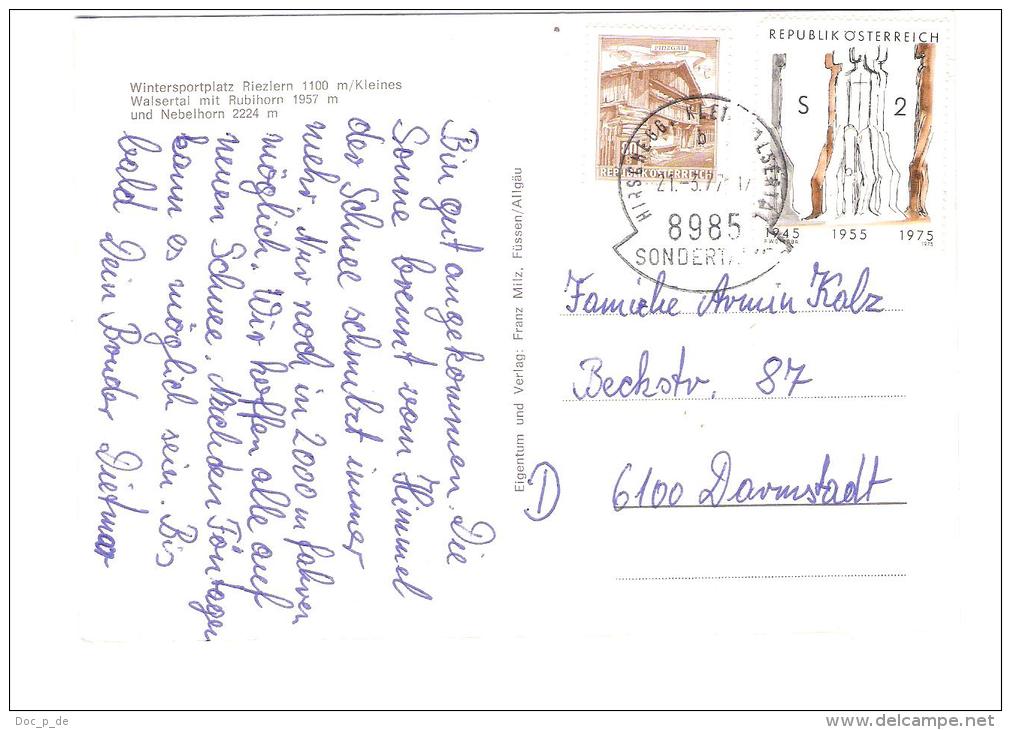 Wintersportplatz Riezlern 1100 m/Kleines
Walsertal mit Rubihorn 1957 m
und Nebelhorn 2224 m
Bin gut angekommen. Die
Sonne brennt vom Himmel
der Schnee schmilzt immer
mehr. Nur noch in 2000 m fahren
möglich. Wir hoffen alle auf
neuen Schnee. Nach den Föntagen
kann es möglich sein. Bis
bald Dein Bruder Dietmar
Eigentum und Verlag: Franz Milz, Füssen/Allgäu
PINZGAU
REPUBLIK ÖSTERREICH
REPUBLIK ÖSTERREICH
S 2
1945 1955 1975
1975
b
8985
D
Familie Armin Kalz
Beckstr. 87
6100 Darmstadt
Doc_p_de
www.delcampe.net